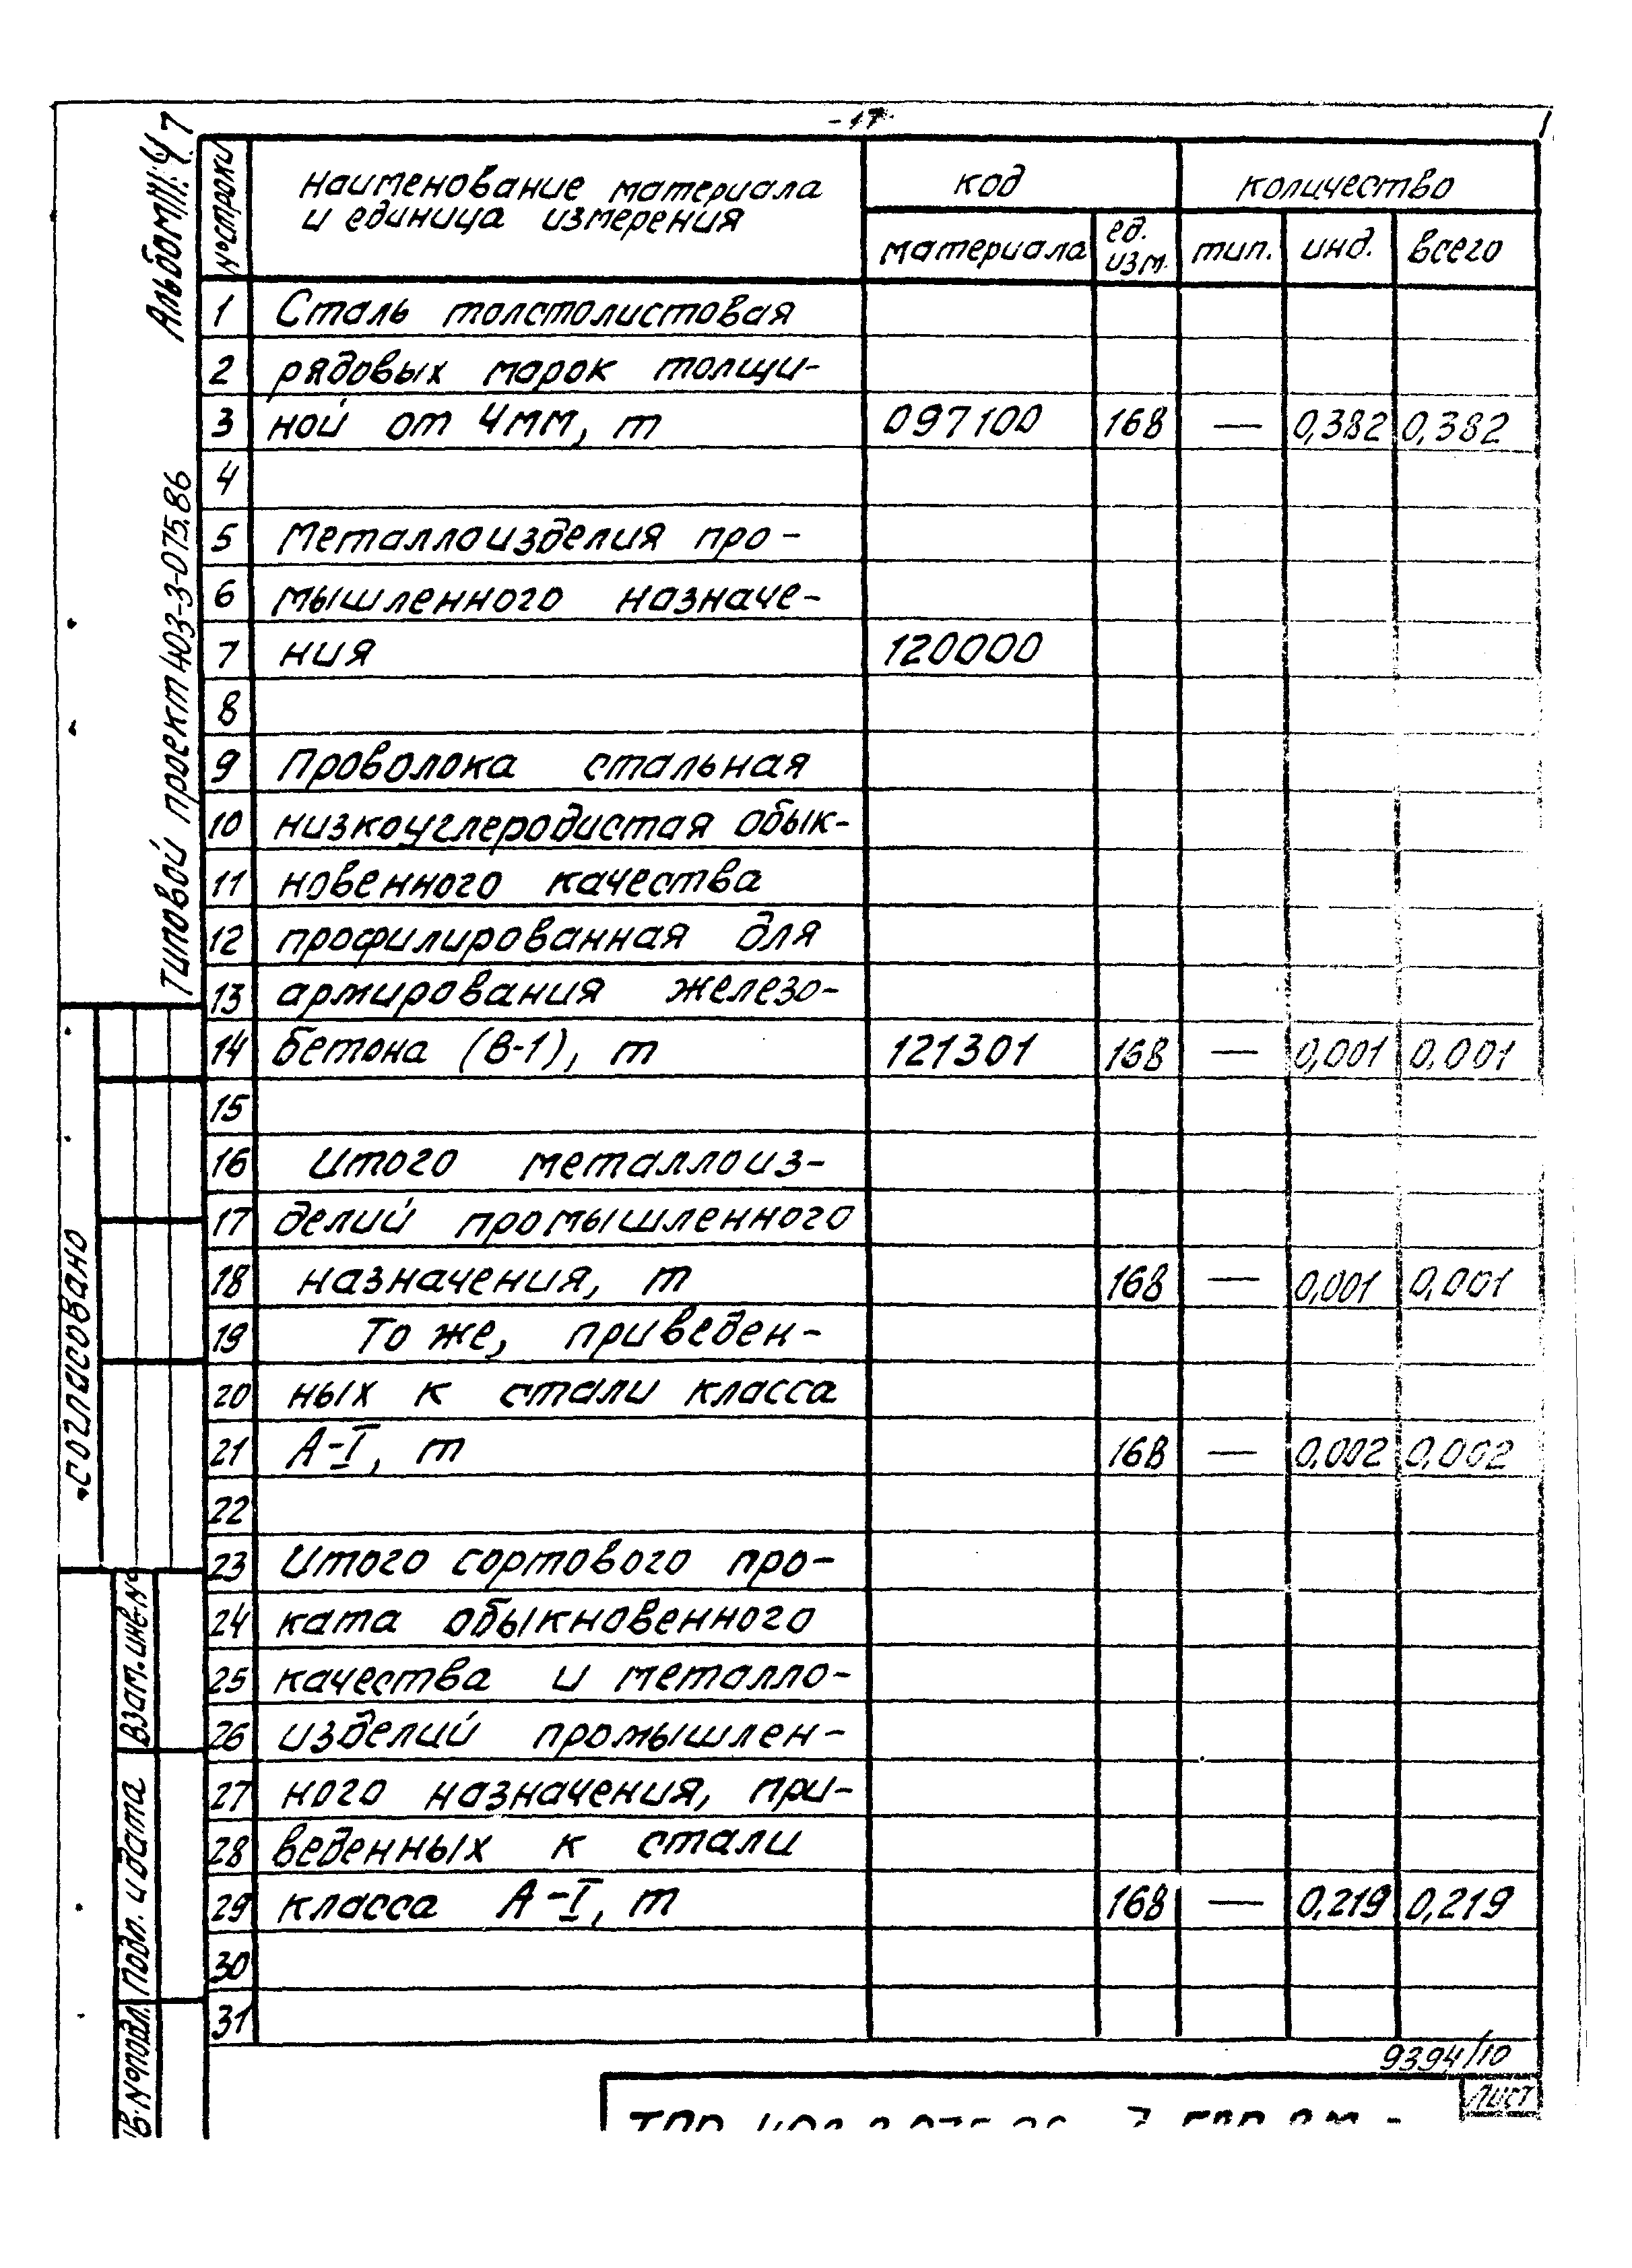 -17-
Альбом
7
Типовой проект 403-3-075.86
№ строки
наименование материала
и единица измерения
код
количество
материала
ед.
изм.
тип.
инд.
всего
1 Сталь толстолистовая
2 рядовых марок толщи-
3 ной от 4мм, т 097100 168 — 0,382 0,382
4
5 Металлоизделия про-
6 мышленного назначе-
7 ния 120000
8
9 Проволока стальная
10 низкоуглеродистая обык-
11 новенного качества
12 профилированная для
13 армирования железо-
14 бетона (В-1), т 121301 168 — 0,001 0.001
15
16 Итого металлоиз-
17 делий промышленного
18 назначения, т 168 — 0,001 0,001
19 То же, приведен-
20 ных к стали класса
21 А-I, т 168 — 0,002 0,002
22
23 Итого сортового про-
24 ката обыкновенного
25 качества и металло-
26 изделий промышлен-
27 ного назначения, при-
28 веденных к стали
29 класса А-I, т 168 — 0,219 0,219
30
31
согласовано
Взам.инв.№
Подп. и дата
№подл.
9394/10
Лист